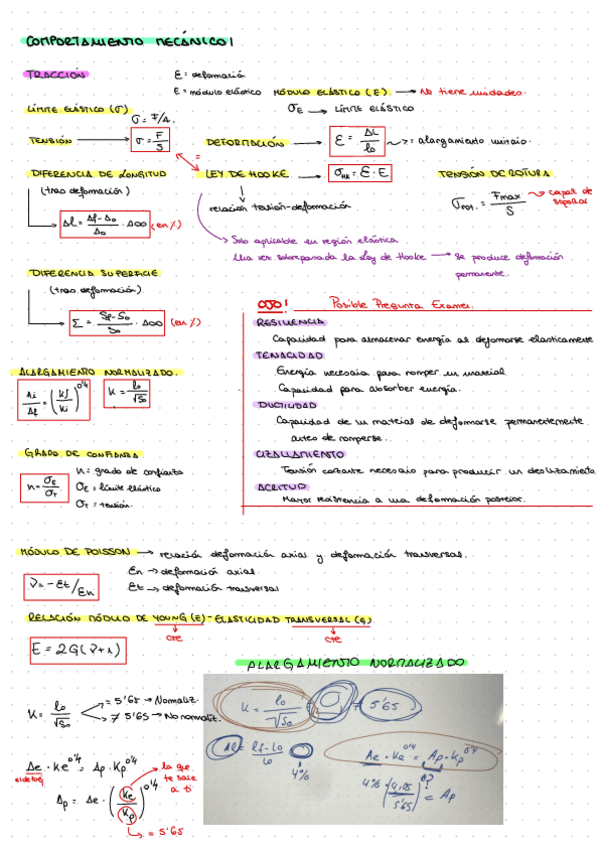 COMPORTAMIENTO MECÁNICO I
TRACCIÓN
ε = deformación
E = módulo elástico
MÓDULO ELÁSTICO (E) → No tiene unidades.
LÍMITE ELÁSTICO (σ)
σ = F/A
σE → LÍMITE ELÁSTICO
TENSIÓN → σ = F/S
DEFORMACIÓN → ε = ΔL/l₀ → alargamiento unitario
DIFERENCIA DE LONGITUD
(tras deformación)
=
LEY DE HOOKE → = ε · E
relación tensión-deformación
TENSIÓN DE ROTURA
σrot. = Fmax/S → capaz de soportar
· 100 (en %)
Solo aplicable en región elástica
Una vez sobrepasada la Ley de Hooke → se produce deformación permanente.
DIFERENCIA SUPERFICIE
(tras deformación)
Σ = Sf-S₀/S₀ · 100 (en %)
OJO! Posible Pregunta Examen.
RESILIENCIA
Capacidad para almacenar energía al deformarse elasticamente
TENACIDAD
Energía necesaria para romper un material
Capacidad para absorber energía.
DUCTILIDAD
Capacidad de un material de deformarse permanentemente
antes de romperse.
CIZALLAMIENTO
Tensión cortante necesario para producir un deslizamiento
ACRITUD
Mayor resistencia a una deformación posterior.
ALARGAMIENTO NORMALIZADO.
K = l₀/√S₀
GRADO DE CONFIANZA
n = σE/σT
n = grado de confianza
σE = límite elástico
σT = tensión.
MÓDULO DE POISSON → relación deformación axial y deformación transversal.
ν = -εt/εn
εn → deformación axial
εt → deformación transversal
RELACIÓN MÓDULO DE YOUNG (E) - ELASTICIDAD TRANSVERSAL (G)
cte
cte
E = 2G(ν+1)
ALARGAMIENTO NORMALIZADO
K = l₀/√S₀
= 5'65 → Normaliz.
≠ 5'65 → No normaliz.
Ae · Ke^0'4 = Ap · Kp^0'4
Ap = Ae · (Ke/Kp)^0'4
la que te sale a ti
= 5'65
K = l₀/√S₀ ≠ 5'65
= lf-l₀/l₀
4%
Ae · Ke^0'4 = Ap · Kp^0'4
= Ap